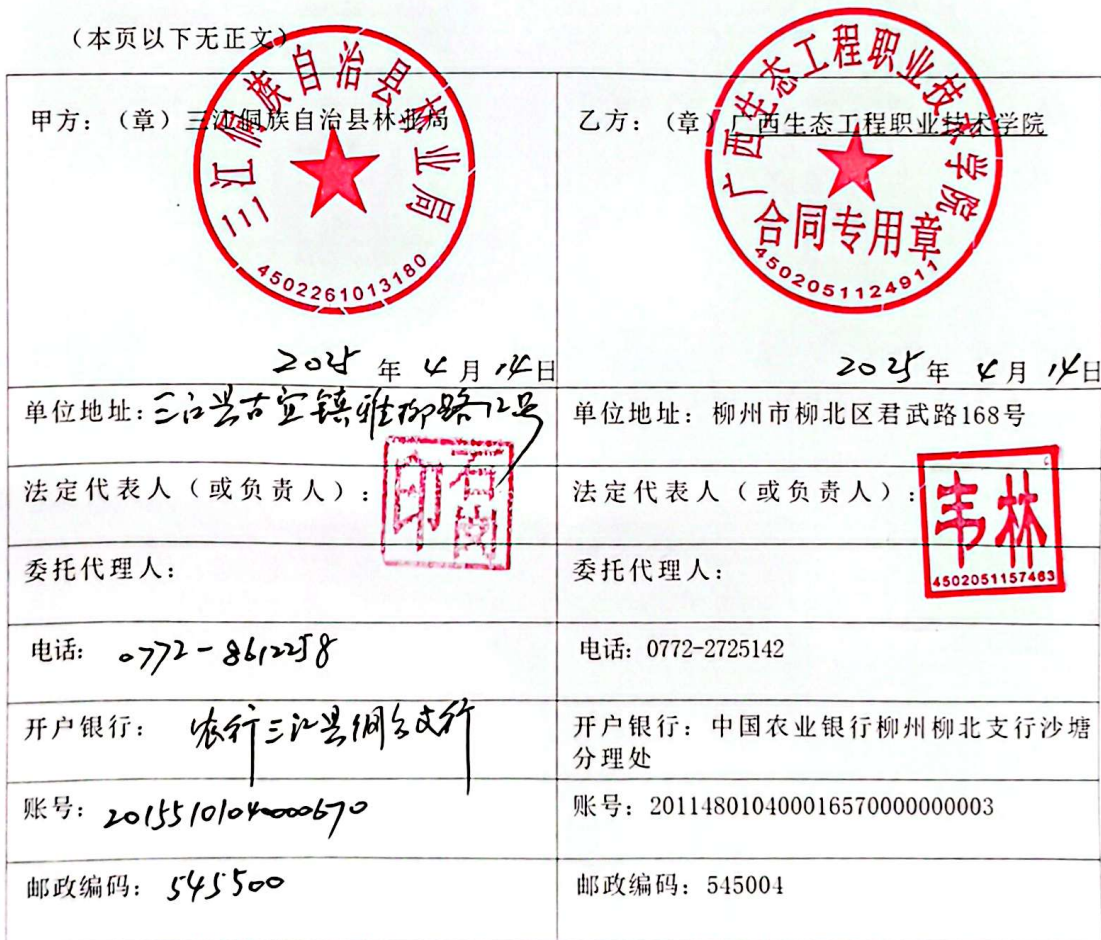 （本页以下无正文）
甲方：（章）三江侗族自治县林业局
三江侗族自治县林业局
4502261013180
2025 年 4 月 14 日
乙方：（章）广西生态工程职业技术学院
广西生态工程职业技术学院
合同专用章
4502051124911
2025 年 4 月 14 日
单位地址：三江县古宜镇雅柳路12号
单位地址：柳州市柳北区君武路168号
法定代表人（或负责人）：
印
法定代表人（或负责人）：
韦林
4502051157463
委托代理人：
委托代理人：
电话：0772-8612258
电话：0772-2725142
开户银行：农行三江县侗乡支行
开户银行：中国农业银行柳州柳北支行沙塘
分理处
账号：20155101040000670
账号：201148010400016570000000003
邮政编码：545500
邮政编码：545004